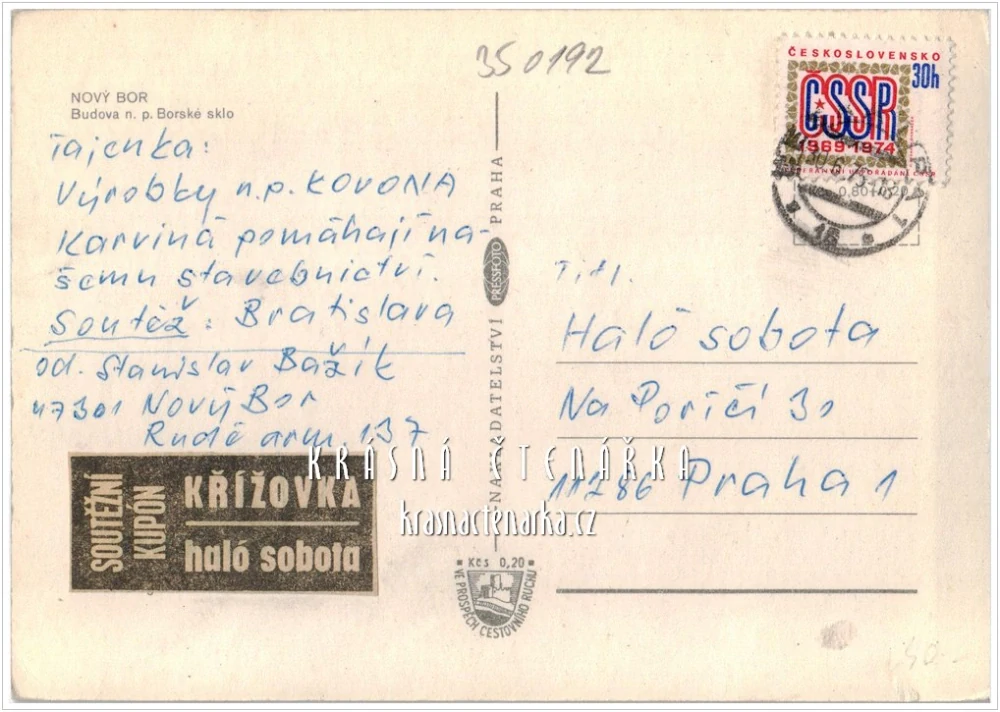 35 0192
NOVÝ BOR
Budova n. p. Borské sklo
Tajenka:
Výrobky n.p. KOVONA
Karviná pomáhají na-
šemu stavebnictví.
Soutěž: Bratislava
od. Stanislav Bažík
47301 Nový Bor
Rudé arm. 137
SOUTĚŽNÍ
KUPÓN
KŘÍŽOVKA
haló sobota
NAKLADATELSTVÍ PRESSFOTO PRAHA
Kčs 0,20
VE PROSPĚCH CESTOVNÍHO RUCHU
ČESKOSLOVENSKO
30h
ČSSR
1969-1974
15
Titl.
Haló sobota
Na Poříčí 30
11286 Praha 1
KRÁSNÁ ČTENÁŘKA
krasnactenarka.cz